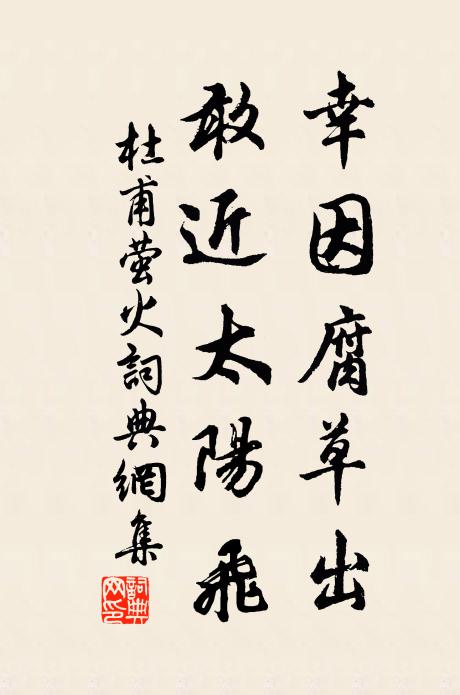 幸因腐草出
敢近太陽飛
杜甫螢火詞典網集
詞典網印